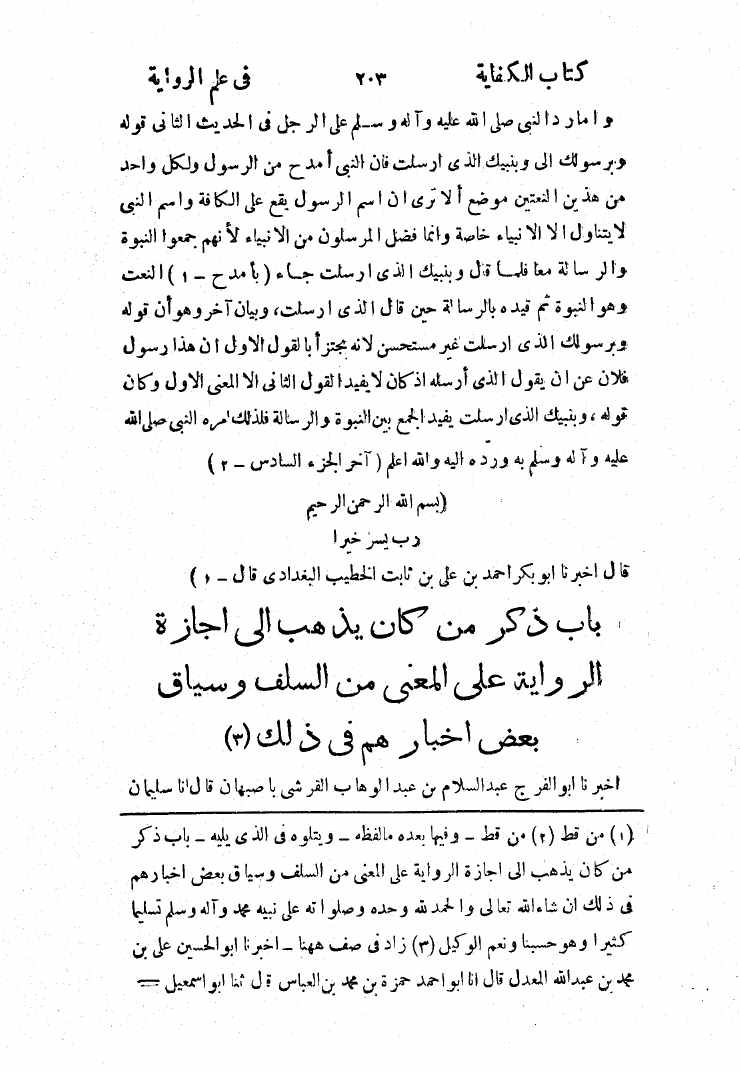 كتاب الكفاية ٢٠٣ فى علم الرواية
واما رد النبى صلى الله عليه وآله وسلم على الرجل فى الحديث الثانى قوله
وبرسولك الى وبنبيك الذى ارسلت فان النبى أمدح من الرسول ولكل واحد
من هذين النعتين موضع ألا ترى ان اسم الرسول يقع على الكافة واسم النبى
لا يتناول الا الانبياء خاصة وانما فضل المرسلون من الانبياء لأنهم جمعوا النبوة
والرسالة معا فلما قال وبنبيك الذى ارسلت جاء (بأمدح - ١) النعت
وهو النبوة ثم قيده بالرسالة حين قال الذى ارسلت، وبيان آخر وهو أن قوله
وبرسولك الذى ارسلت غير مستحسن لانه يجتزأ بالقول الاول ان هذا رسول
فلان عن ان يقول الذى أرسله اذ كان لا يفيد القول الثانى الا المعنى الاول وكان
قوله، وبنبيك الذى ارسلت يفيد الجمع بين النبوة والرسالة فلذلك امره النبى صلى الله
عليه وآله وسلم به وردّه اليه والله اعلم (آخر الجزء السادس - ٢)
(بسم الله الرحمن الرحيم
رب يسر خيرا
قال اخبرنا ابو بكر احمد بن على بن ثابت الخطيب البغدادى قال - ١)
باب ذكر من كان يذهب الى اجازة
الرواية على المعنى من السلف وسياق
بعض اخبارهم فى ذلك (٣)
اخبرنا ابو الفرج عبدالسلام بن عبد الوهاب القرشى باصبهان قال انا سليمان
(١) من قط (٢) من قط - وفيها بعده مالفظه - ويتلوه فى الذى يليه - باب ذكر
من كان يذهب الى اجازة الرواية على المعنى من السلف وسياق بعض اخبارهم
فى ذلك ان شاءالله تعالى والحمد لله وحده وصلواته على نبيه محمد وآله وسلم تسليما
كثيرا وهو حسبنا ونعم الوكيل (٣) زاد فى صف ههنا - اخبرنا ابو الحسين على بن
محمد بن عبدالله المعدل قال انا ابو احمد حمزة بن محمد بن العباس قال ثنا ابو اسمعيل =